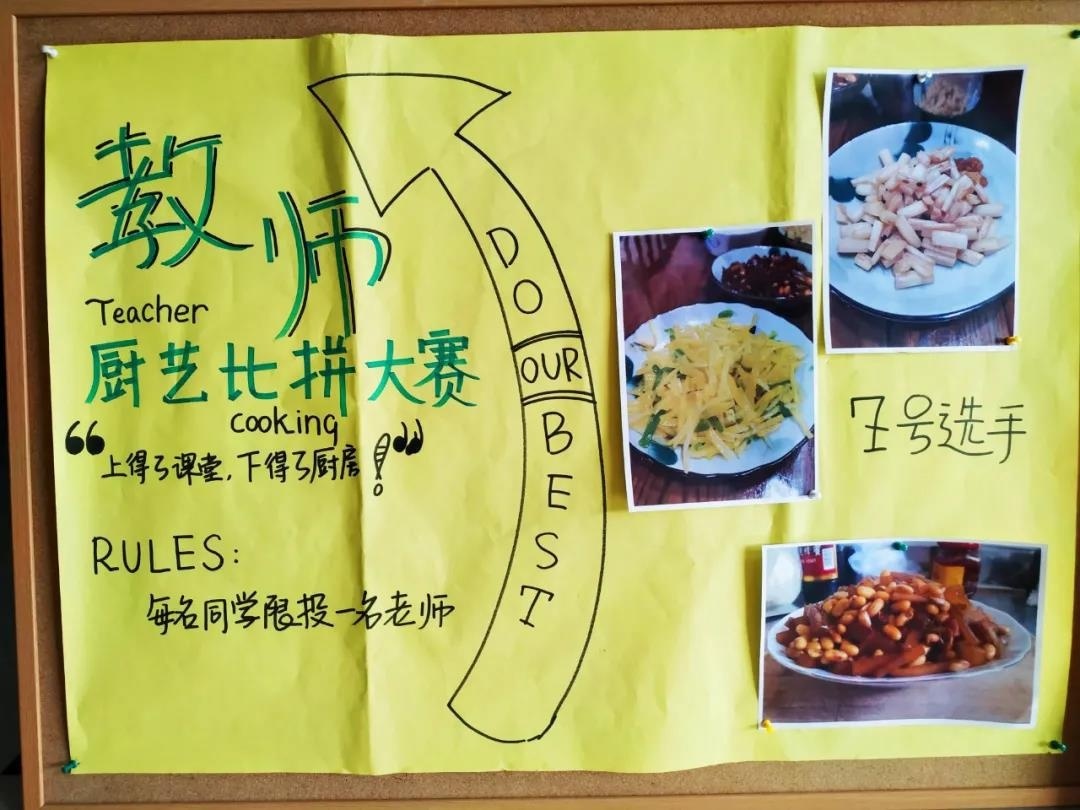 教师
Teacher
厨艺比拼大赛
cooking
“上得了课堂,下得了厨房!”
RULES:
每名同学限投一名老师
DO OUR BEST
7号选手